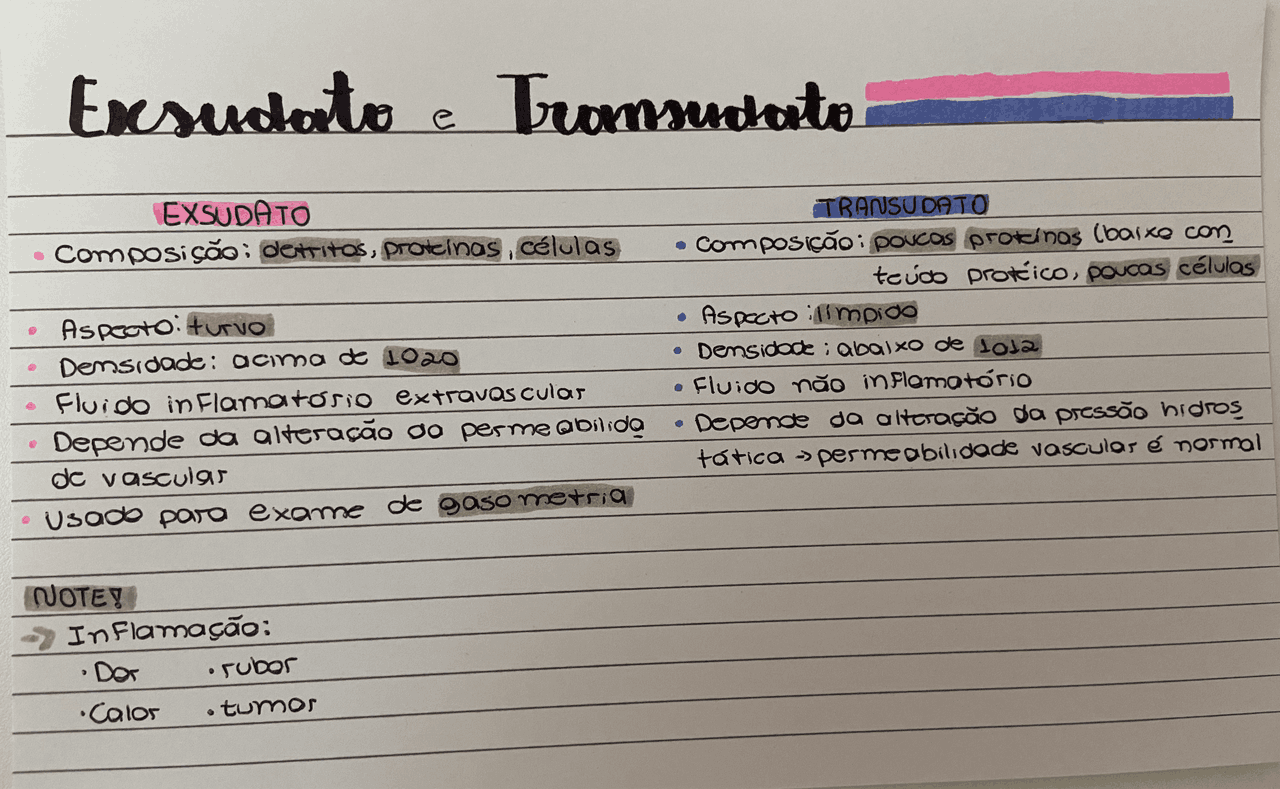 Exsudato e Transudato
EXSUDATO
• Composição: detritos, proteínas, células
• Aspecto: turvo
• Densidade: acima de 1020
• Fluido inflamatório extravascular
• Depende da alteração do permeabilida
de vascular
• Usado para exame de gasometria
TRANSUDATO
• Composição: poucas proteínas (baixo con
teúdo protéico, poucas células
• Aspecto: límpido
• Densidade: abaixo de 1012
• Fluido não inflamatório
• Depende da alteração da pressão hidros
tática → permeabilidade vascular é normal
NOTE!
→ Inflamação:
• Dor • rubor
• Calor • tumor